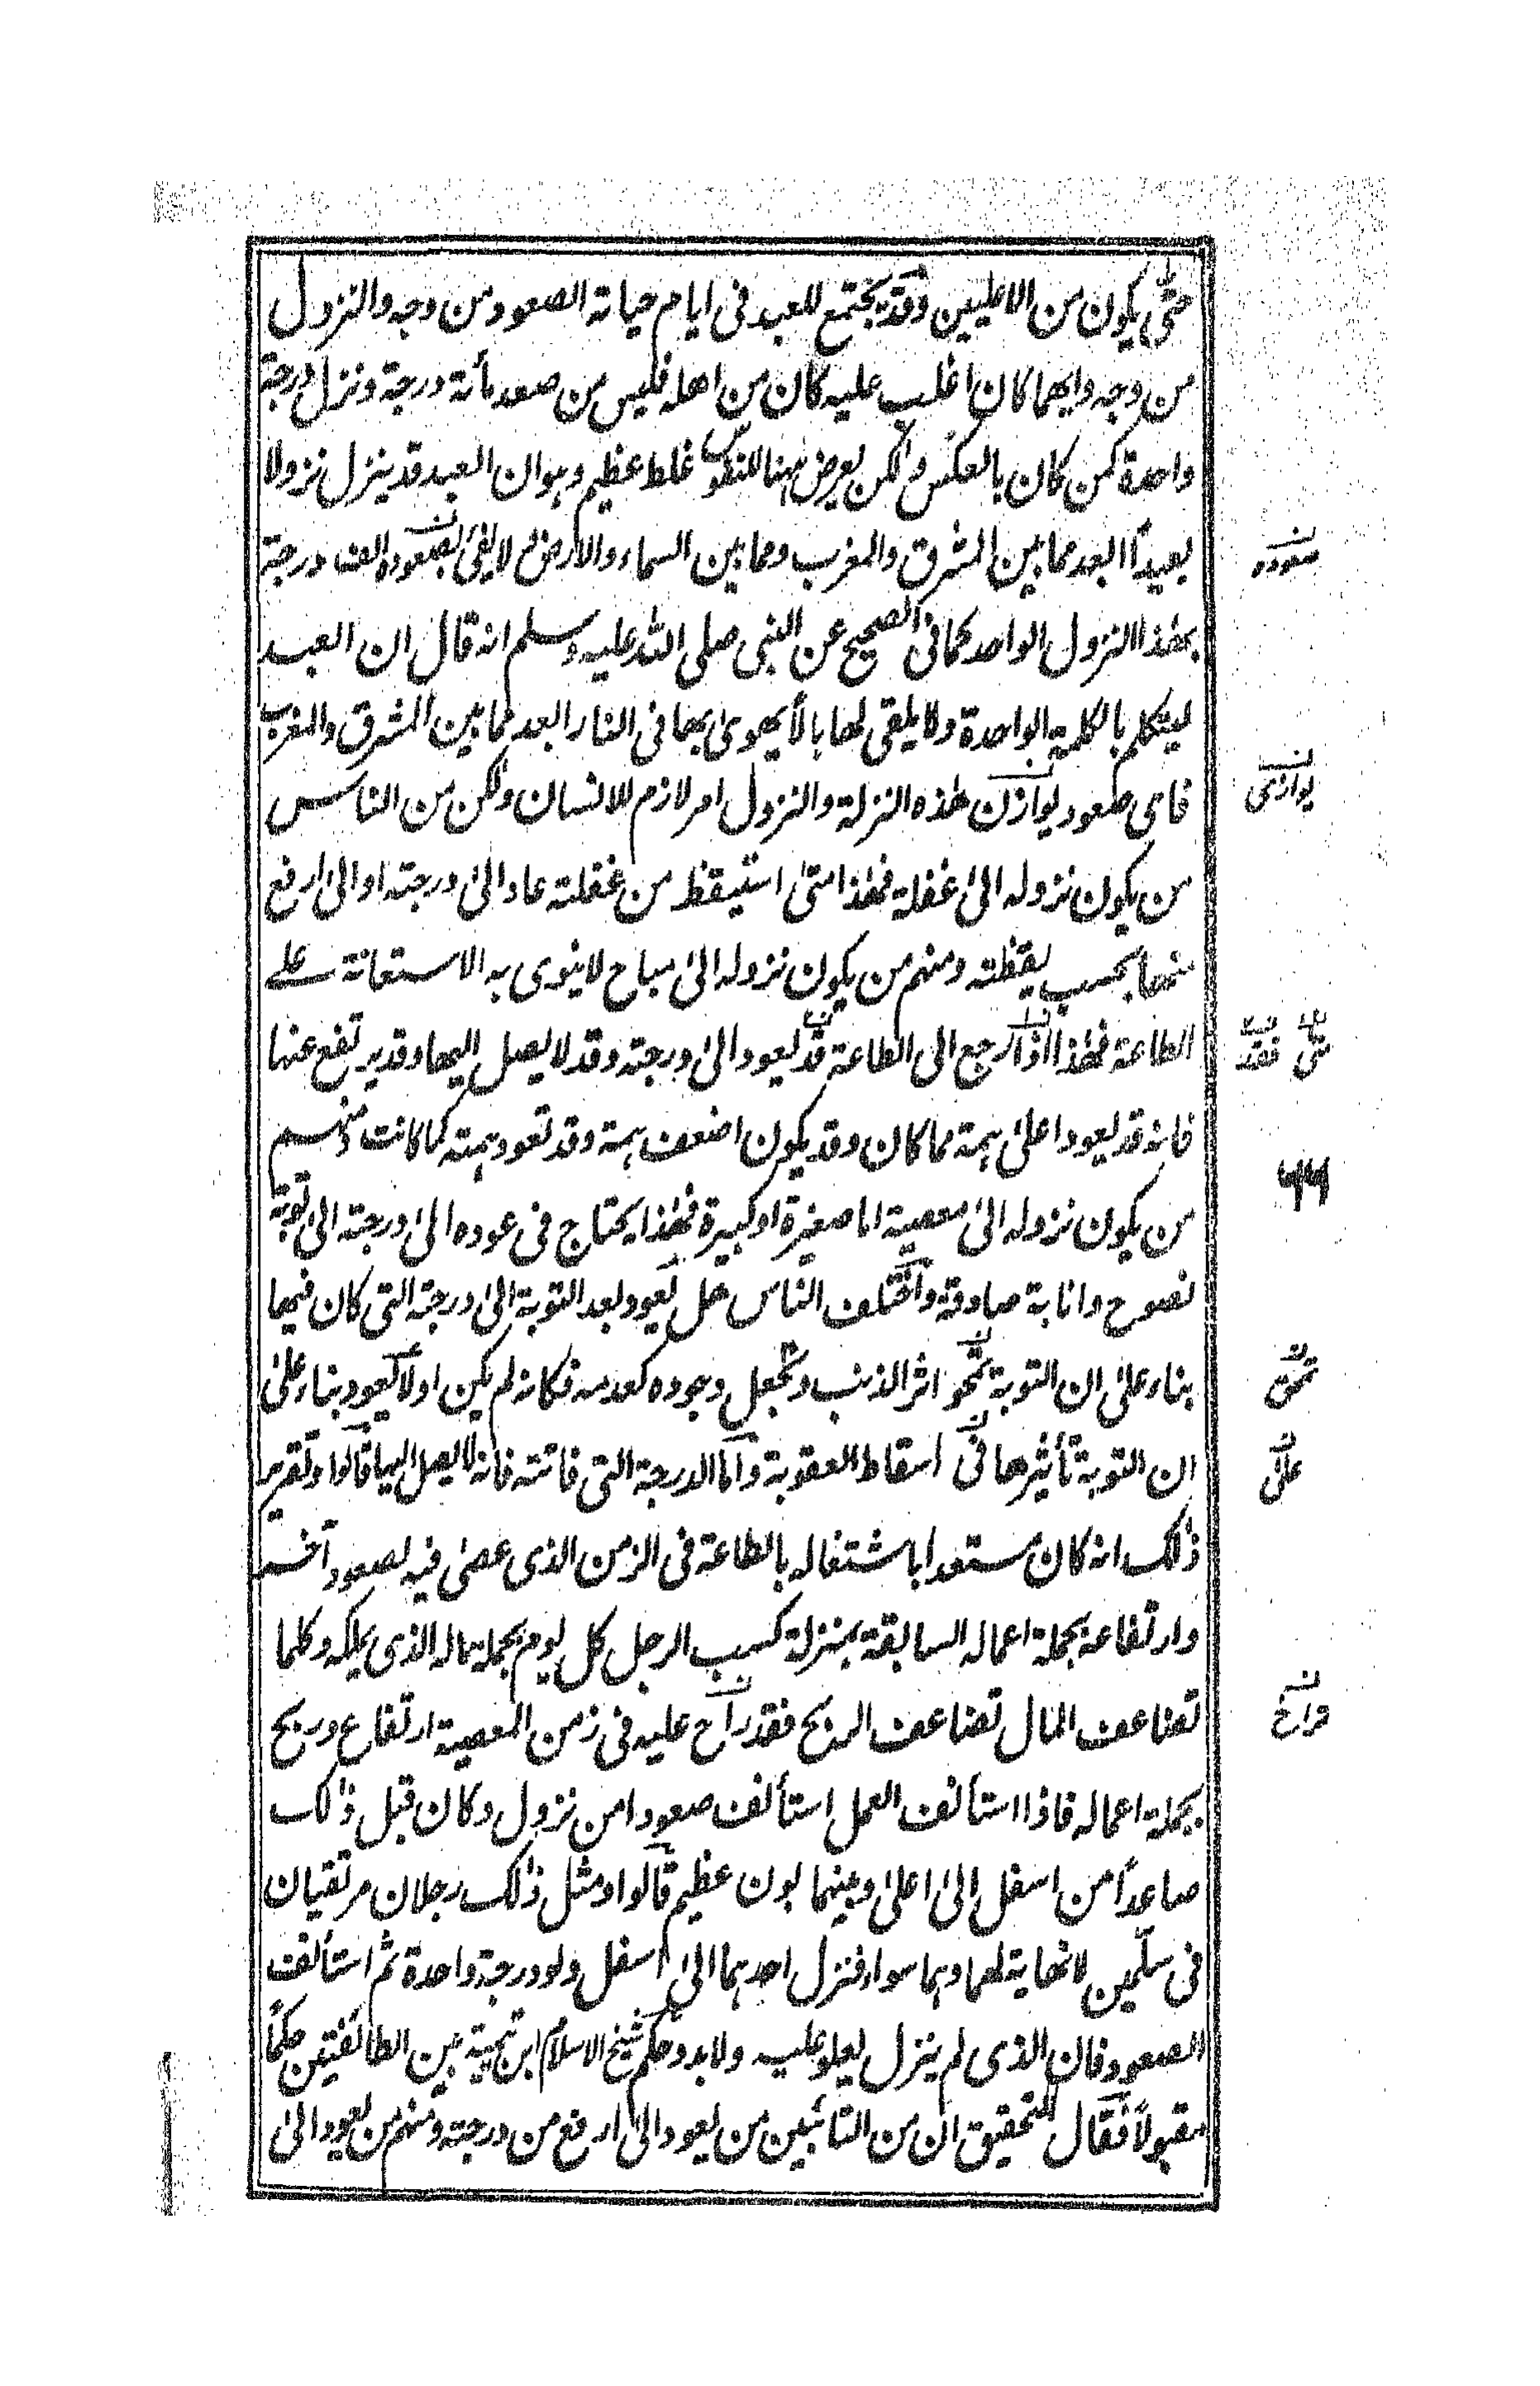 حتى يكون من الاعليين وقد يجتمع للعبد فى ايام حياته الصعود من وجه والنزول
من وجه وايهما كان اغلب عليه كان من اهله فليس من صعد مأته درجة ونزل درجة
واحدة كمن كان بالعكس ولكن يعرض ههنا للنفوس غلط عظيم وهو ان العبد قد ينزل نزولا
بعيداً ابعد مما بين المشرق والمغرب ومما بين السماء والارض ثم لا يفى بصعوده الف درجة
بهذا النزول الواحد كما فى الصحيح عن النبى صلى الله عليه وسلم انه قال ان العبد
ليتكلم بالكلمة الواحدة ولا يلقى لها بالاً يهوى بها فى النار ابعد مما بين المشرق والمغرب
فاى صعود يوازن هذه النزلة والنزول امر لازم للانسان ولكن من الناس
من يكون نزوله الى غفلة فهذا متى استيقظ من غفلته عاد الى درجته او الى ارفع
منها بحسب يقظته ومنهم من يكون نزوله الى مباح لا ينوى به الاستعانة على
الطاعة فهذا اذا رجع الى الطاعة قد يعود الى درجته وقد لا يصل اليها وقد يرتفع عنها
فانه قد يعود اعلى همة مما كان وقد يكون اضعف همة وقد تعود همته كما كانت ومنهم
من يكون نزوله الى معصية اما صغيرة او كبيرة فهذا يحتاج فى عوده الى درجته الى توبة
نصوح وانابة صادقة واختلف الناس هل يعود بعد التوبة الى درجته التى كان فيها
بناء على ان التوبة تمحو اثر الذنب وتجعل وجوده كعدمه فكانه لم يكن اولا يعود بناء على
ان التوبة تأثيرها فى اسقاط العقوبة واما الدرجة التى فاتته فانه لا يصل اليها قالوا وتقرير
ذلك انه كان مستعدا باشتغاله بالطاعة فى الزمن الذى عصى فيه لصعود آخر
وارتفاعه بجملة اعماله السابقة بمنزلة كسب الرجل كل يوم بجملة ماله الذى يملكه وكلما
تضاعف المال تضاعف الربح فقد راح عليه فى زمن المعصية ارتفاع وربح
بجملة اعماله فاذا استأنف العمل استأنف صعودا من نزول وكان قبل ذلك
صاعداً من اسفل الى اعلى وبينهما بون عظيم قالوا ومثل ذلك رجلان مرتقيان
فى سلّمين لا نهاية لهما وهما سواء فنزل احدهما الى اسفل ولو درجة واحدة ثم استأنف
الصعود فان الذى لم ينزل يعلو عليه ولا بد وحكم شيخ الاسلام ابن تيمية بين الطائفتين حكماً
مقبولاً فقال التحقيق ان من التائبين من يعود الى ارفع من درجته ومنهم من يعود الى
صعوده
يوازى
متى
فقد
۶۶
تمحق
على
فراغ